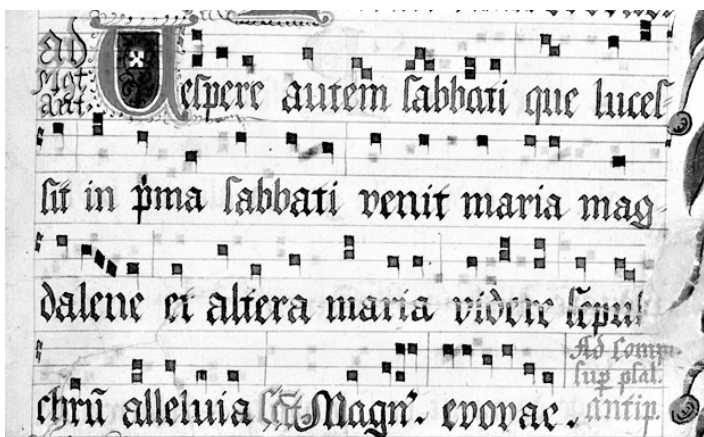 Ad
Mgt
ant.
Uespere autem sabbati que luces-
sit in pma sabbati venit maria mag
dalene et altera maria videre sepul
chrū alleluia Magn. evovae.
Ad comp
sup psal.
antip.